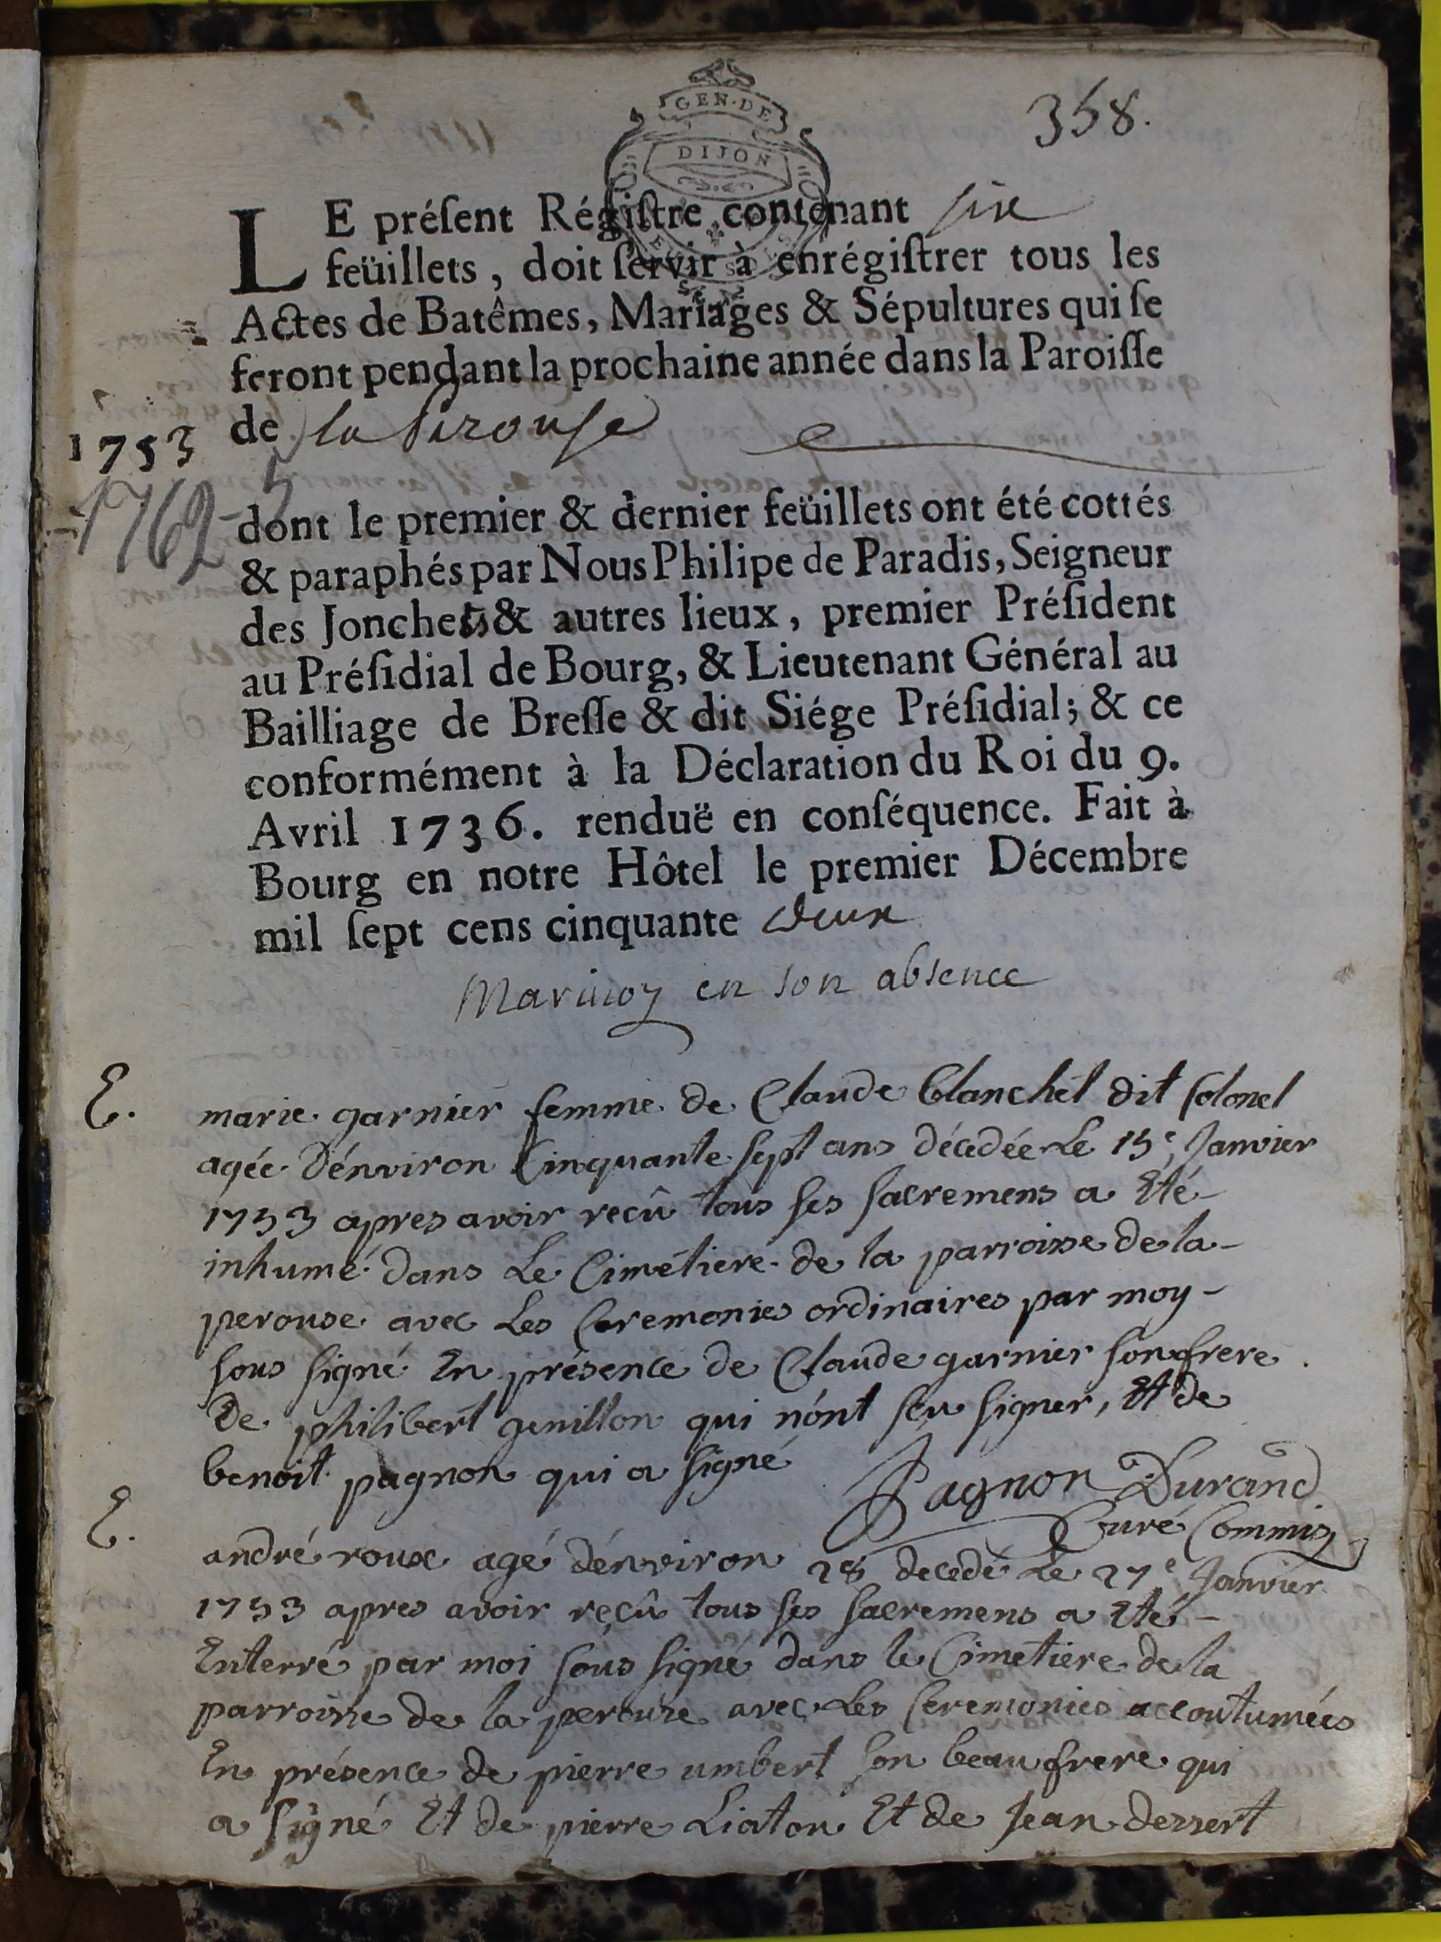 358.
GEN. DE
DIJON
LE préſent Régiſtre contenant six
feüillets, doit ſervir à enrégiſtrer tous les
Actes de Batêmes, Mariages & Sépultures qui ſe
feront pendant la prochaine année dans la Paroiſſe
1753 de la Perouse
1762-5
dont le premier & dernier feüillets ont été cottés
& paraphés par Nous Philipe de Paradis, Seigneur
des Jonchets & autres lieux, premier Préſident
au Préſidial de Bourg, & Lieutenant Général au
Bailliage de Breſſe & dit Siége Préſidial; & ce
conformément à la Déclaration du Roi du 9.
Avril 1736. renduë en conſéquence. Fait à
Bourg en notre Hôtel le premier Décembre
mil ſept cens cinquante deux
en son absence
E. marie garnier femme de Claude blanchet dit Colonel
agée d'énviron Cinquante sept ans décédée Le 15e Janvier
1753 apres avoir reçû tous ses sacremens a Eté
inhumé dans Le Cimétiere de la parroisse de la
perouse avec Les Ceremonies ordinaires par moy
sous signé En présence de Claude garnier son frere
De philibert genillon qui n'ont sçu signer, Et de
benoit pagnon qui a signé
Pagnon Durand
Curé Commis
E. andré roux agé d'énviron 28 decedé Le 27e Janvier
1753 apres avoir reçû tous ses sacremens a Eté
Enterré par moi sous signé dans le Cimetiere de la
parroisse de la perouse avec Les Ceremonies accoutumées
En présence de pierre umbert son beau frere qui
a signé Et de pierre Liaton Et de Jean dessert